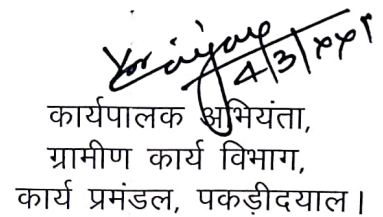 4/3/
कार्यपालक अभियंता,
ग्रामीण कार्य विभाग,
कार्य प्रमंडल, पकड़ीदयाल।